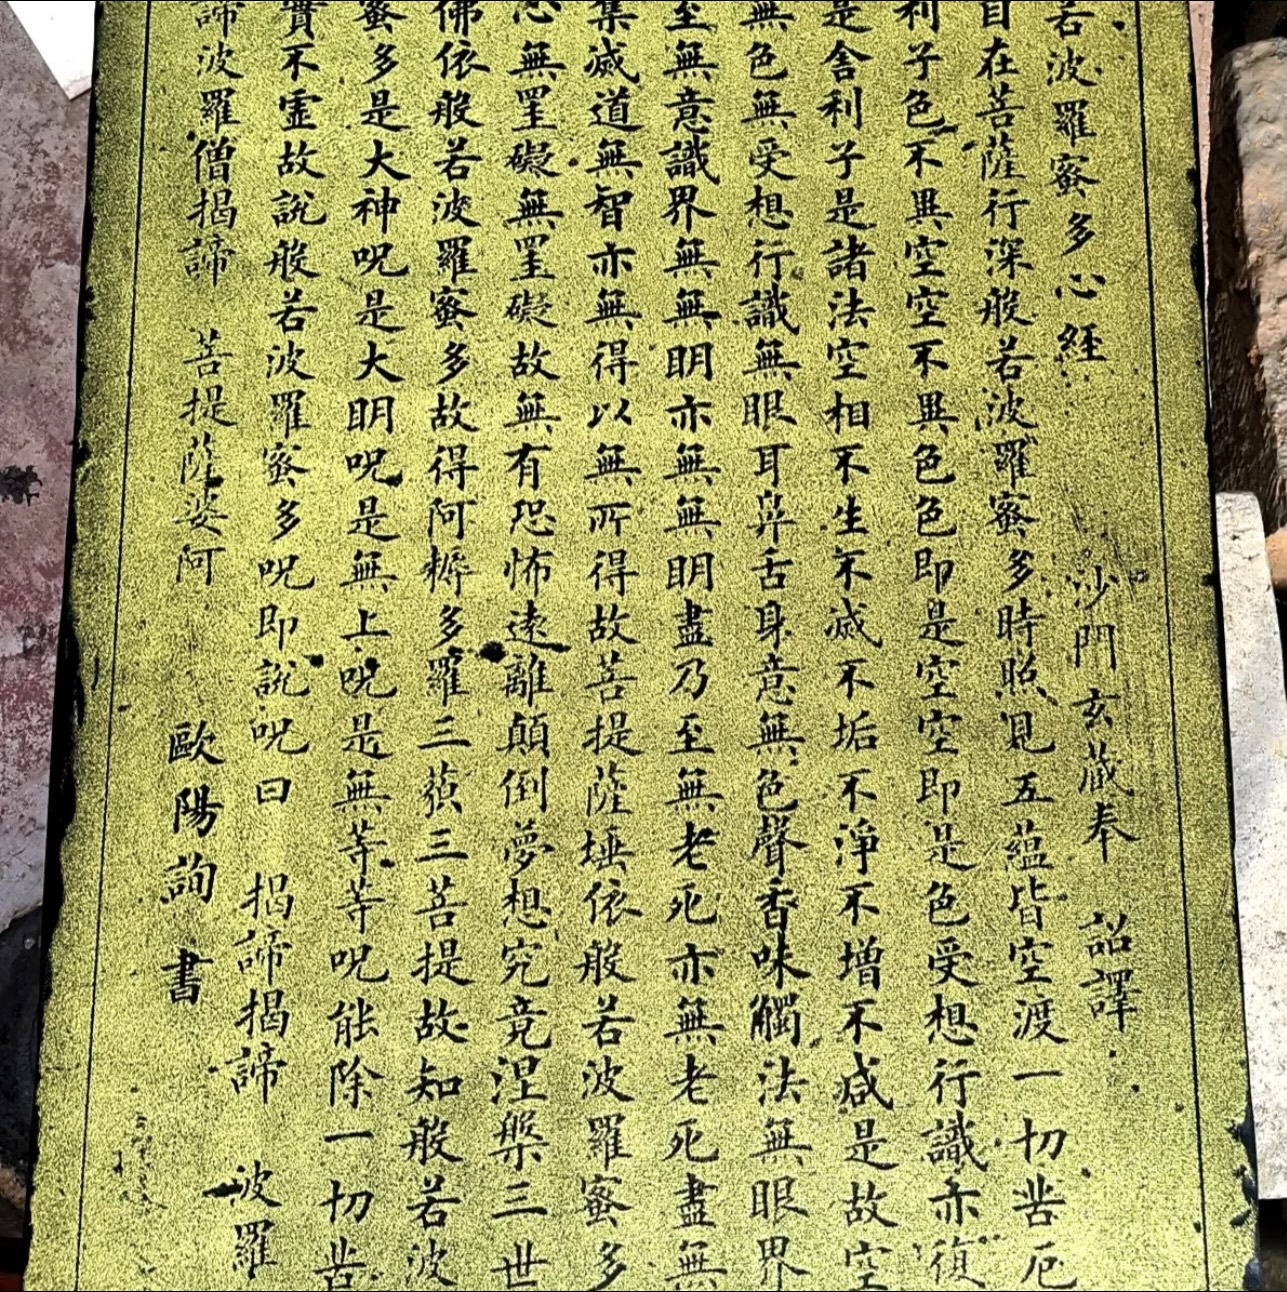 若波羅蜜多心經
沙門玄蔵奉 詔譯
自在菩薩行深般若波羅蜜多時照見五蘊皆空渡一切苦厄
利子色不異空空不異色色即是空空即是色受想行識亦復
是舍利子是諸法空相不生不滅不垢不淨不增不減是故空
無色無受想行識無眼耳鼻舌身意無色聲香味觸法無眼界
至無意識界無無明亦無無明盡乃至無老死亦無老死盡無
集滅道無智亦無得以無所得故菩提薩埵依般若波羅蜜多
心無罣礙無罣礙故無有恐怖遠離顛倒夢想究竟涅槃三世
佛依般若波羅蜜多故得阿耨多羅三藐三菩提故知般若波
蜜多是大神呪是大明呪是無上呪是無等等呪能除一切苦
實不虛故說般若波羅蜜多呪即說呪曰 揭諦揭諦 波羅
諦波羅僧揭諦 菩提薩婆阿
歐陽詢 書